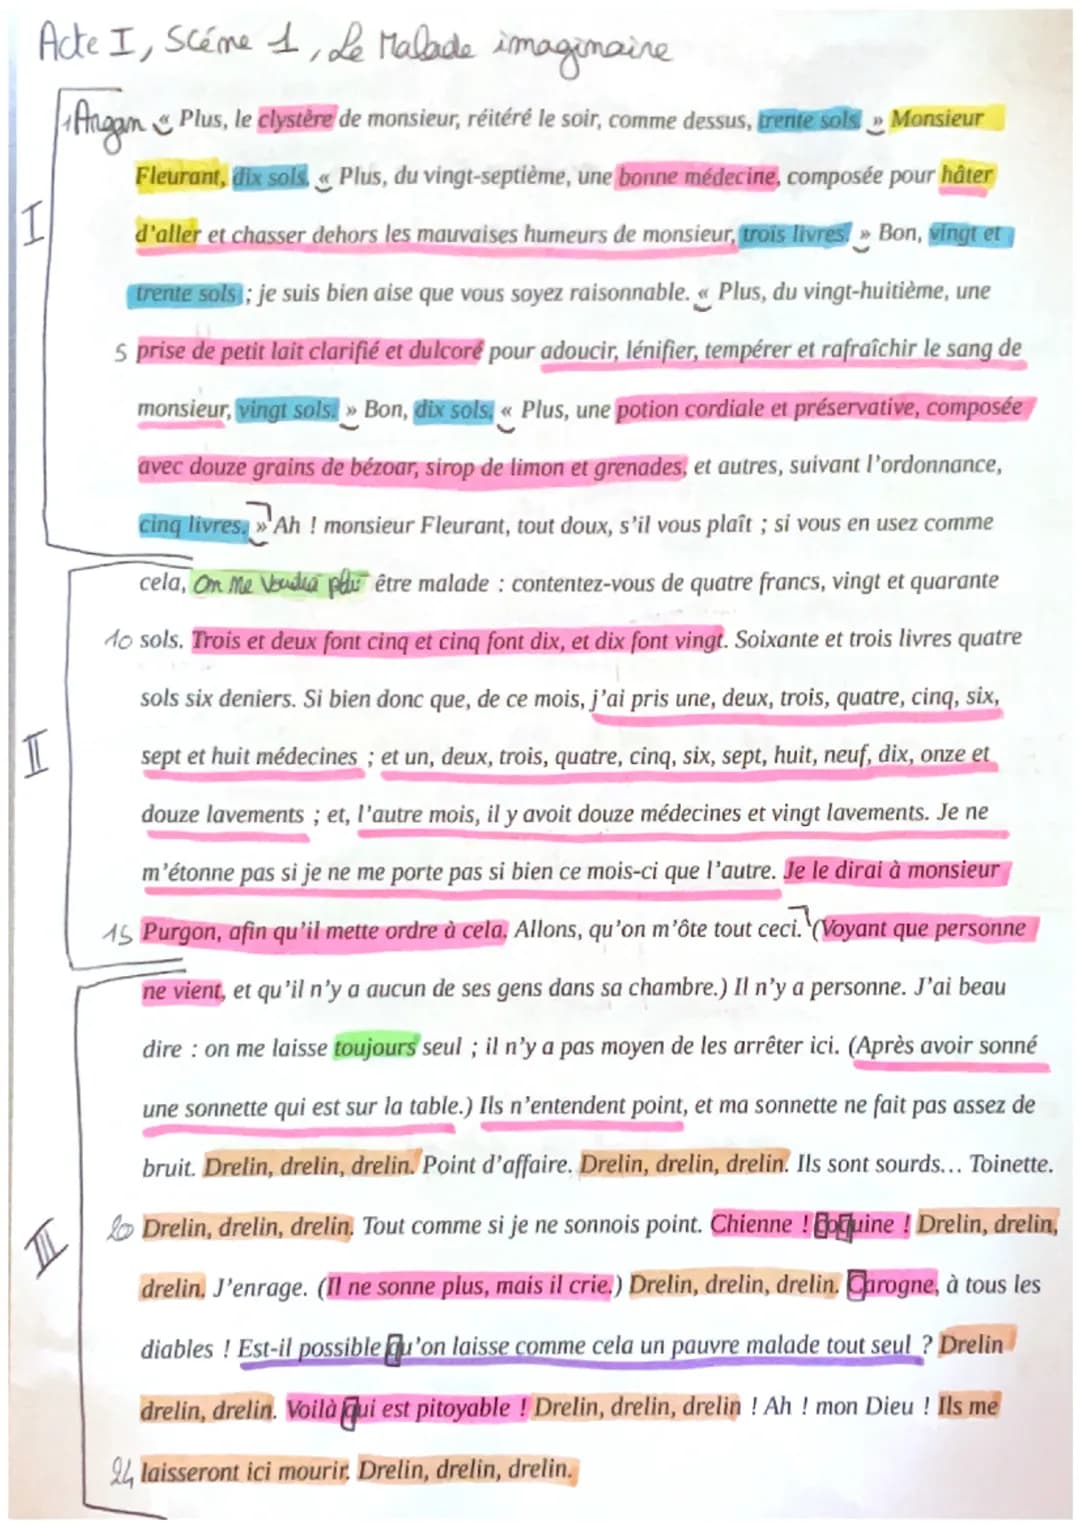 Acte I, Scéne 1, Le Malade imaginaire
1 Argan « Plus, le clystère de monsieur, réitéré le soir, comme dessus, trente sols. » Monsieur
Fleurant, dix sols. « Plus, du vingt-septième, une bonne médecine, composée pour hâter
I
d'aller et chasser dehors les mauvaises humeurs de monsieur, trois livres. » Bon, vingt et
trente sols ; je suis bien aise que vous soyez raisonnable. « Plus, du vingt-huitième, une
5 prise de petit lait clarifié et dulcoré pour adoucir, lénifier, tempérer et rafraîchir le sang de
monsieur, vingt sols. » Bon, dix sols. « Plus, une potion cordiale et préservative, composée
avec douze grains de bézoar, sirop de limon et grenades, et autres, suivant l'ordonnance,
cinq livres. » Ah ! monsieur Fleurant, tout doux, s'il vous plaît ; si vous en usez comme
cela, on me voudra plus être malade : contentez-vous de quatre francs, vingt et quarante
10 sols. Trois et deux font cinq et cinq font dix, et dix font vingt. Soixante et trois livres quatre
sols six deniers. Si bien donc que, de ce mois, j'ai pris une, deux, trois, quatre, cinq, six,
II
sept et huit médecines ; et un, deux, trois, quatre, cinq, six, sept, huit, neuf, dix, onze et
douze lavements ; et, l'autre mois, il y avoit douze médecines et vingt lavements. Je ne
m'étonne pas si je ne me porte pas si bien ce mois-ci que l'autre. Je le dirai à monsieur
15 Purgon, afin qu'il mette ordre à cela. Allons, qu'on m'ôte tout ceci. (Voyant que personne
ne vient, et qu'il n'y a aucun de ses gens dans sa chambre.) Il n'y a personne. J'ai beau
dire : on me laisse toujours seul ; il n'y a pas moyen de les arrêter ici. (Après avoir sonné
une sonnette qui est sur la table.) Ils n'entendent point, et ma sonnette ne fait pas assez de
bruit. Drelin, drelin, drelin. Point d'affaire. Drelin, drelin, drelin. Ils sont sourds... Toinette.
III
20 Drelin, drelin, drelin. Tout comme si je ne sonnois point. Chienne ! Coquine ! Drelin, drelin,
drelin. J'enrage. (Il ne sonne plus, mais il crie.) Drelin, drelin, drelin. Carogne, à tous les
diables ! Est-il possible qu'on laisse comme cela un pauvre malade tout seul ? Drelin
drelin, drelin. Voilà qui est pitoyable ! Drelin, drelin, drelin ! Ah ! mon Dieu ! Ils me
24 laisseront ici mourir. Drelin, drelin, drelin.